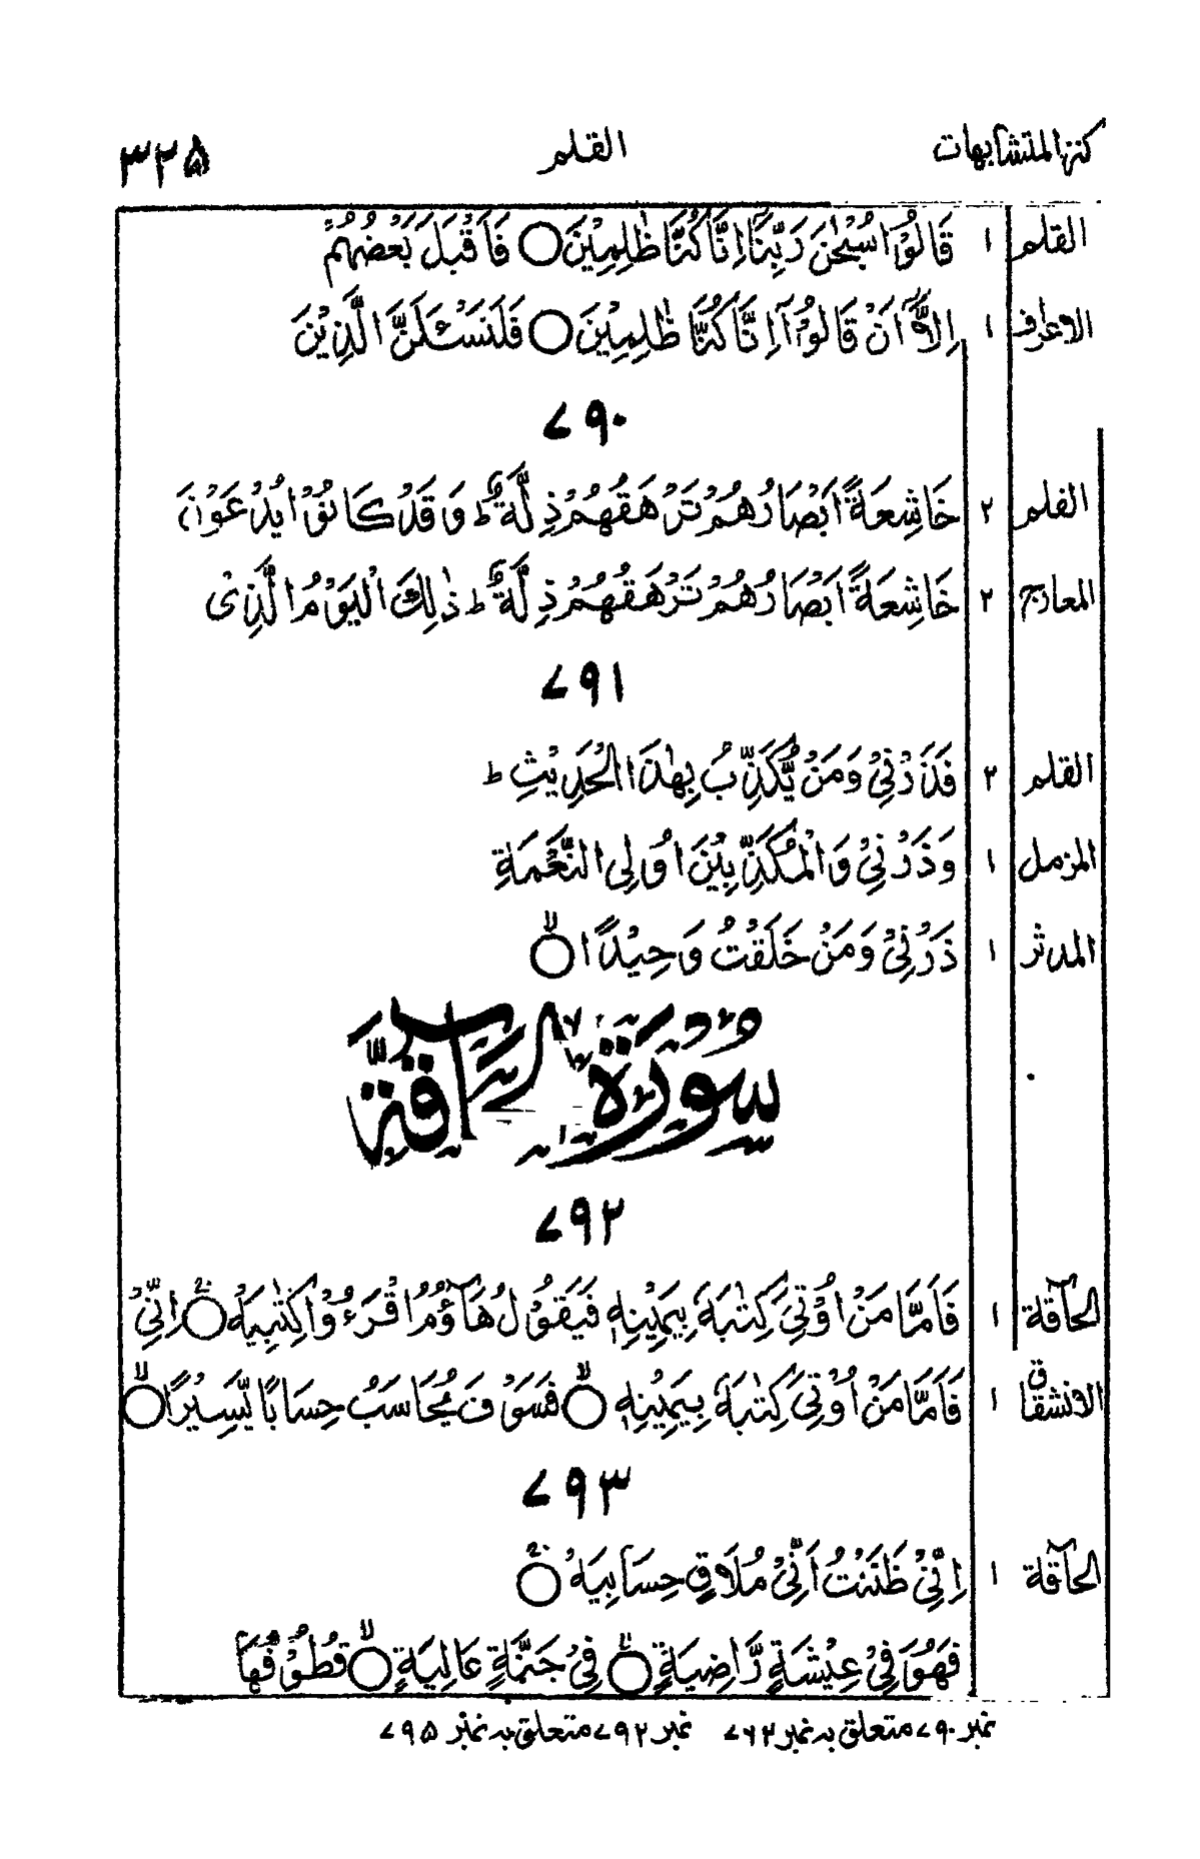 كنز المتشابهات القلم ۳۲۵
القلم ۱ قَالُوْا سُبْحٰنَ رَبِّنَآ اِنَّا كُنَّا ظٰلِمِيْنَ ○ فَاَقْبَلَ بَعْضُهُمْ
الاعراف ۱ اِلَّآ اَنْ قَالُوْٓا اِنَّا كُنَّا ظٰلِمِيْنَ ○ فَلَنَسْـَٔلَنَّ الَّذِيْنَ
۷۹۰
القلم ۲ خَاشِعَةً اَبْصَارُهُمْ تَرْهَقُهُمْ ذِلَّةٌ ؕ وَقَدْ كَانُوْا يُدْعَوْنَ
المعارج ۲ خَاشِعَةً اَبْصَارُهُمْ تَرْهَقُهُمْ ذِلَّةٌ ؕ ذٰلِكَ الْيَوْمُ الَّذِىْ
۷۹۱
القلم ۲ فَذَرْنِىْ وَمَنْ يُّكَذِّبُ بِهٰذَا الْحَدِيْثِ ؕ
المزمل ۱ وَذَرْنِىْ وَالْمُكَذِّبِيْنَ اُولِى النَّعْمَةِ
المدثر ۱ ذَرْنِىْ وَمَنْ خَلَقْتُ وَحِيْدًا ○ۙ
سُوْرَةُ الْحَآقَّةِ
۷۹۲
الحآقة ۱ فَاَمَّا مَنْ اُوْتِىَ كِتٰبَهٗ بِيَمِيْنِهٖ فَيَقُوْلُ هَآؤُمُ اقْرَءُوْا كِتٰبِيَهْ ○ۚ اِنِّىْ
الانشقاق ۱ فَاَمَّا مَنْ اُوْتِىَ كِتٰبَهٗ بِيَمِيْنِهٖ ○ۙ فَسَوْفَ يُحَاسَبُ حِسَابًا يَّسِيْرًا ○ۙ
۷۹۳
الحآقة ۱ اِنِّىْ ظَنَنْتُ اَنِّىْ مُلَاقٍ حِسَابِيَهْ ○ۚ
فَهُوَ فِىْ عِيْشَةٍ رَّاضِيَةٍ ○ۙ فِىْ جَنَّةٍ عَالِيَةٍ ○ۙ قُطُوْفُهَا
نمبر ۷۹۰ متعلق بہ نمبر ۷۶۲ نمبر ۷۹۲ متعلق بہ نمبر ۷۹۵